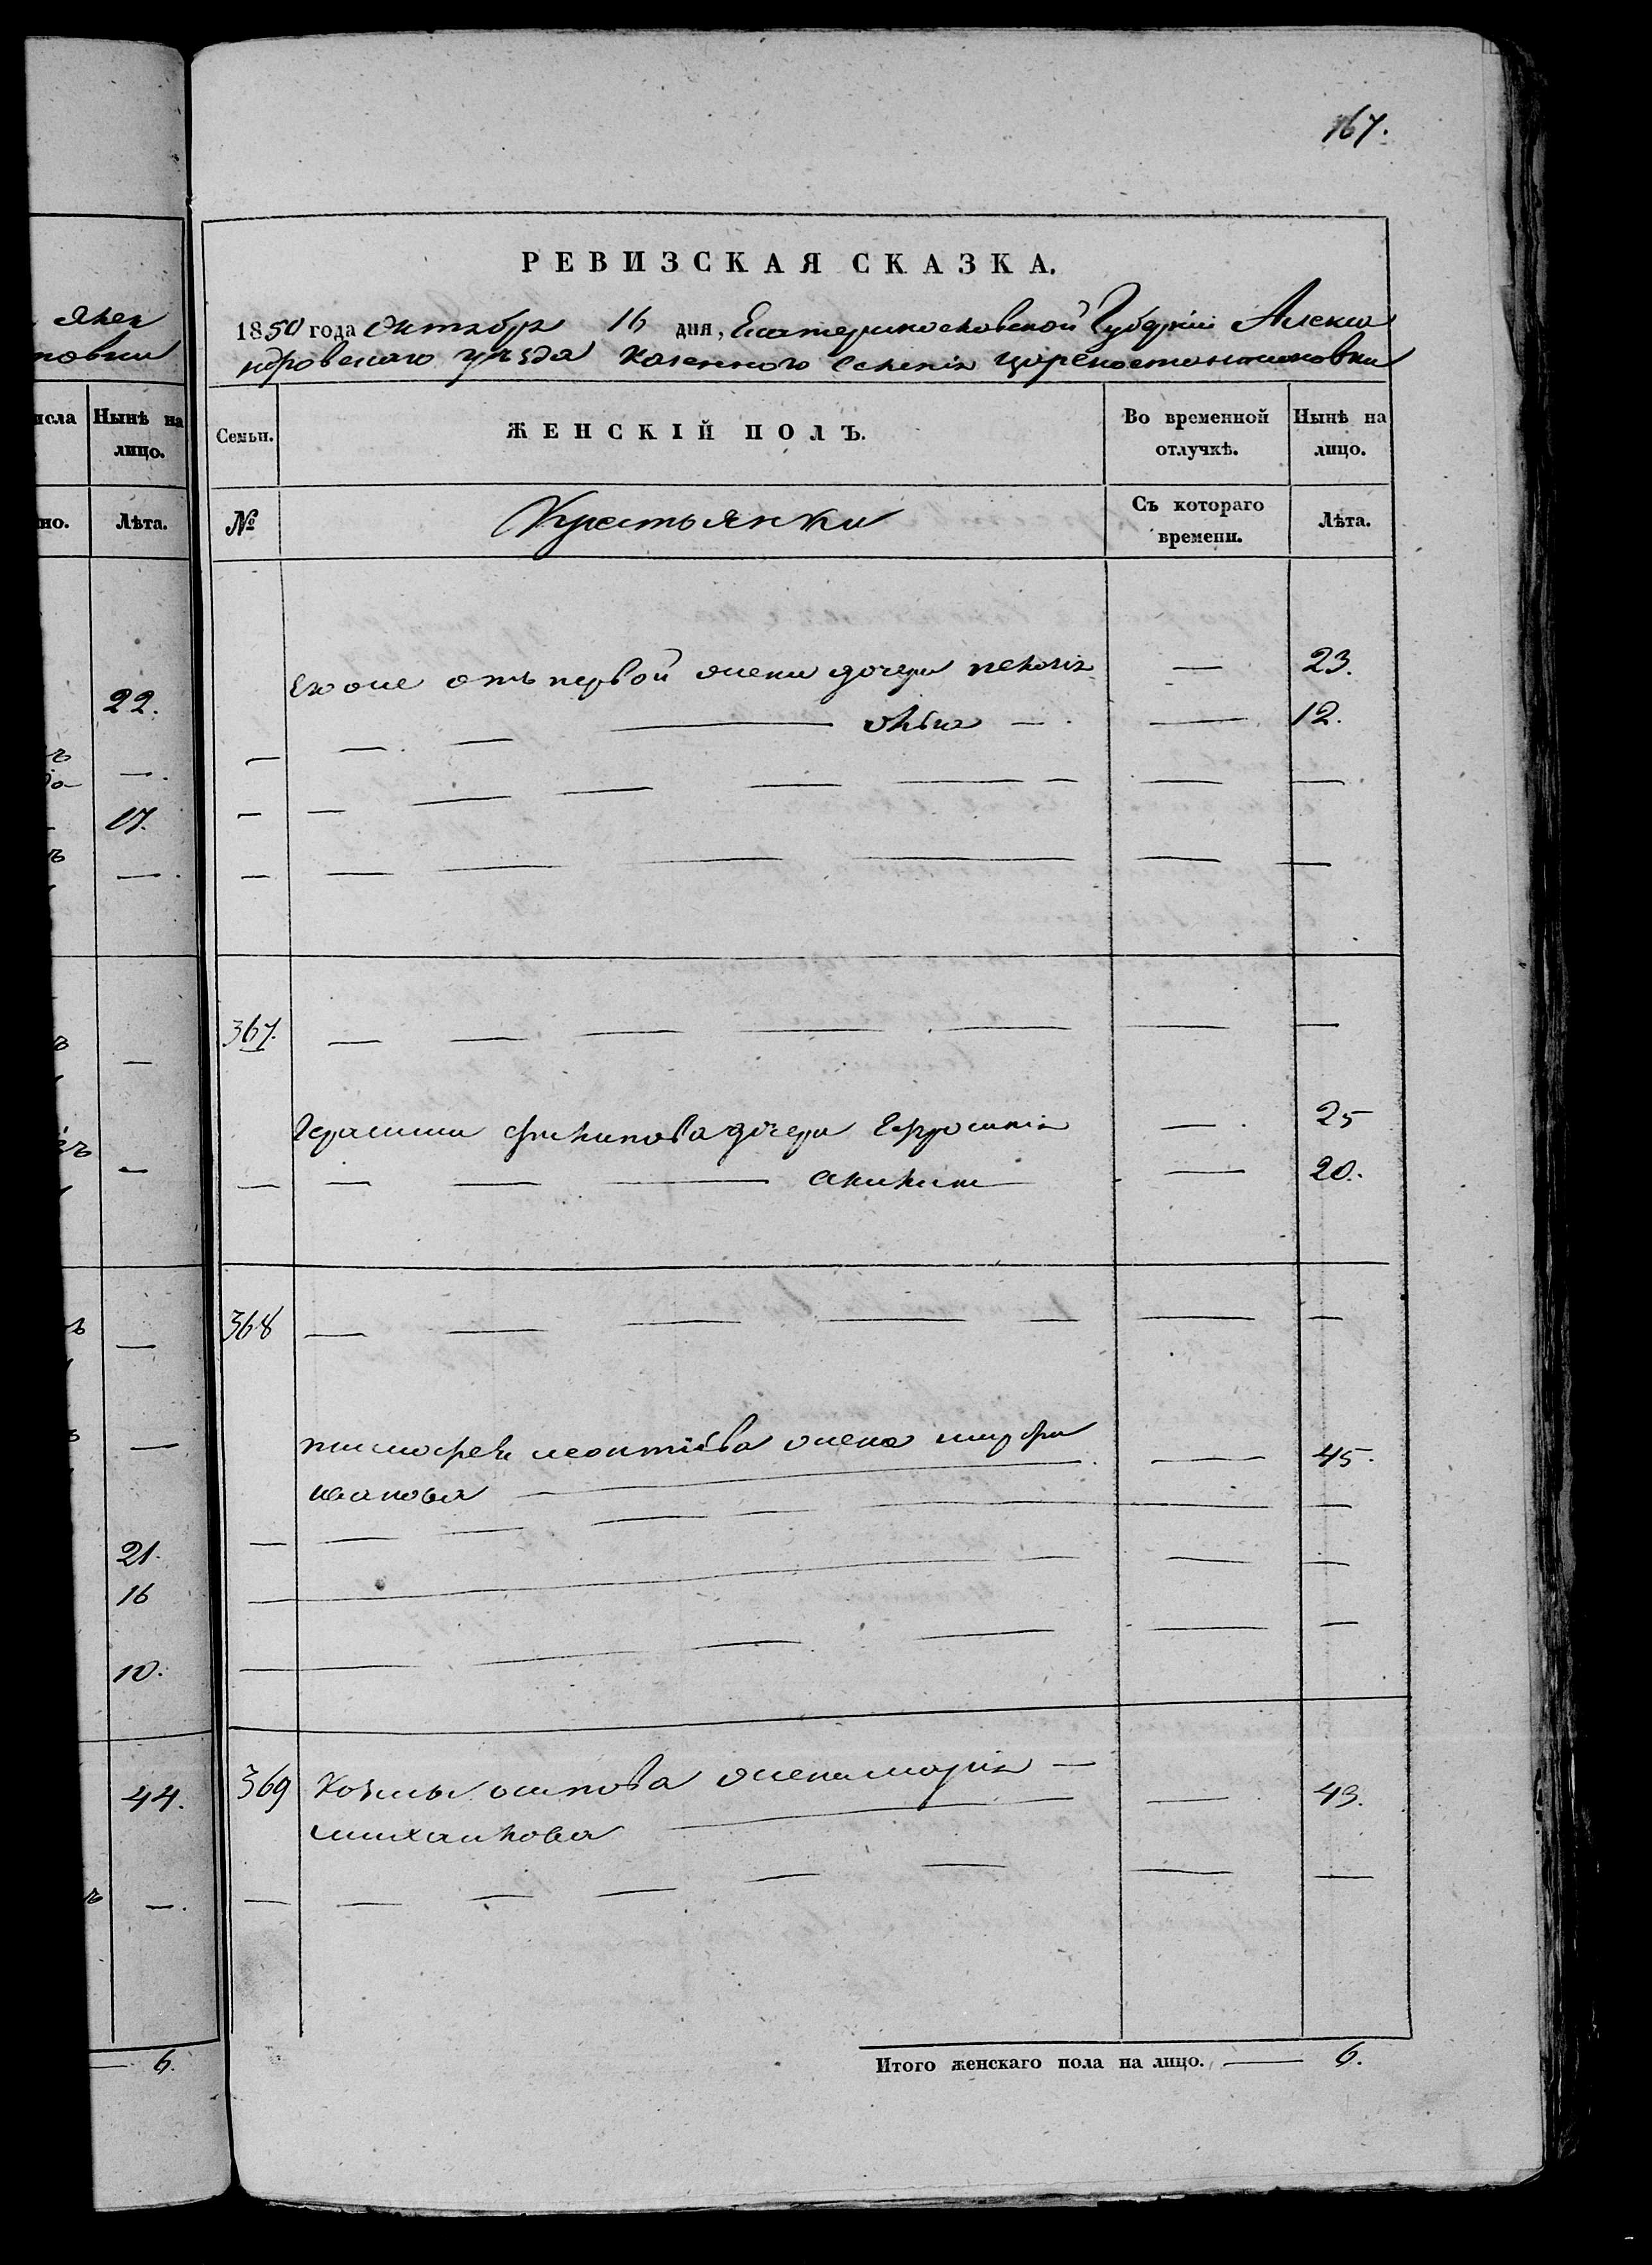 167.
РЕВИЗСКАЯ СКАЗКА.
1850 года Октября 16 дня, Екатеринославской Губерніи Алекса
ндровского уезда Казенного Селенія Цареконстантиновки
Семьи. ЖЕНСКІЙ ПОЛЪ. Во временной отлучкѣ. Нынѣ на лицо.
№ Крестьянки Съ котораго времени. Лѣта.
Его же отъ первой жени дочери пелагія — 23.
— — — — — — — 12.
— — — — — — — —
— — — — — — —
367. — — — — — — —
Герасима филипова дочери Ефросинія — 25
— — — — акилина — 20.
368 — — — — — — —
тимофея леонтіева жена — 45.
иванова —
— — — — — — — —
— — — —
— — — — — —
369 Козмы осипова жена марія — — 43.
михаилова —
— — — — — — — —
Итого женскаго пола на лицо. — 6.
исла Нынѣ на лицо.
но. Лѣта.
22.
— .
17.
— .
—
—
—
—
21.
16
10.
44.
— .
— 6.